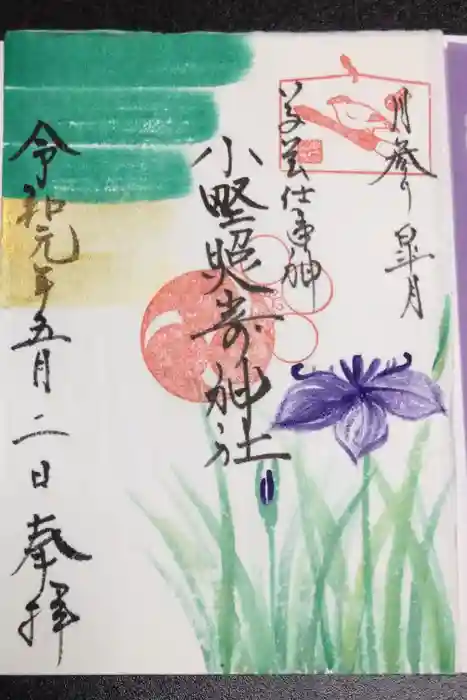 月参り 皐月
芸能仕事神
小野照崎神社
令和元年五月二日 奉拝